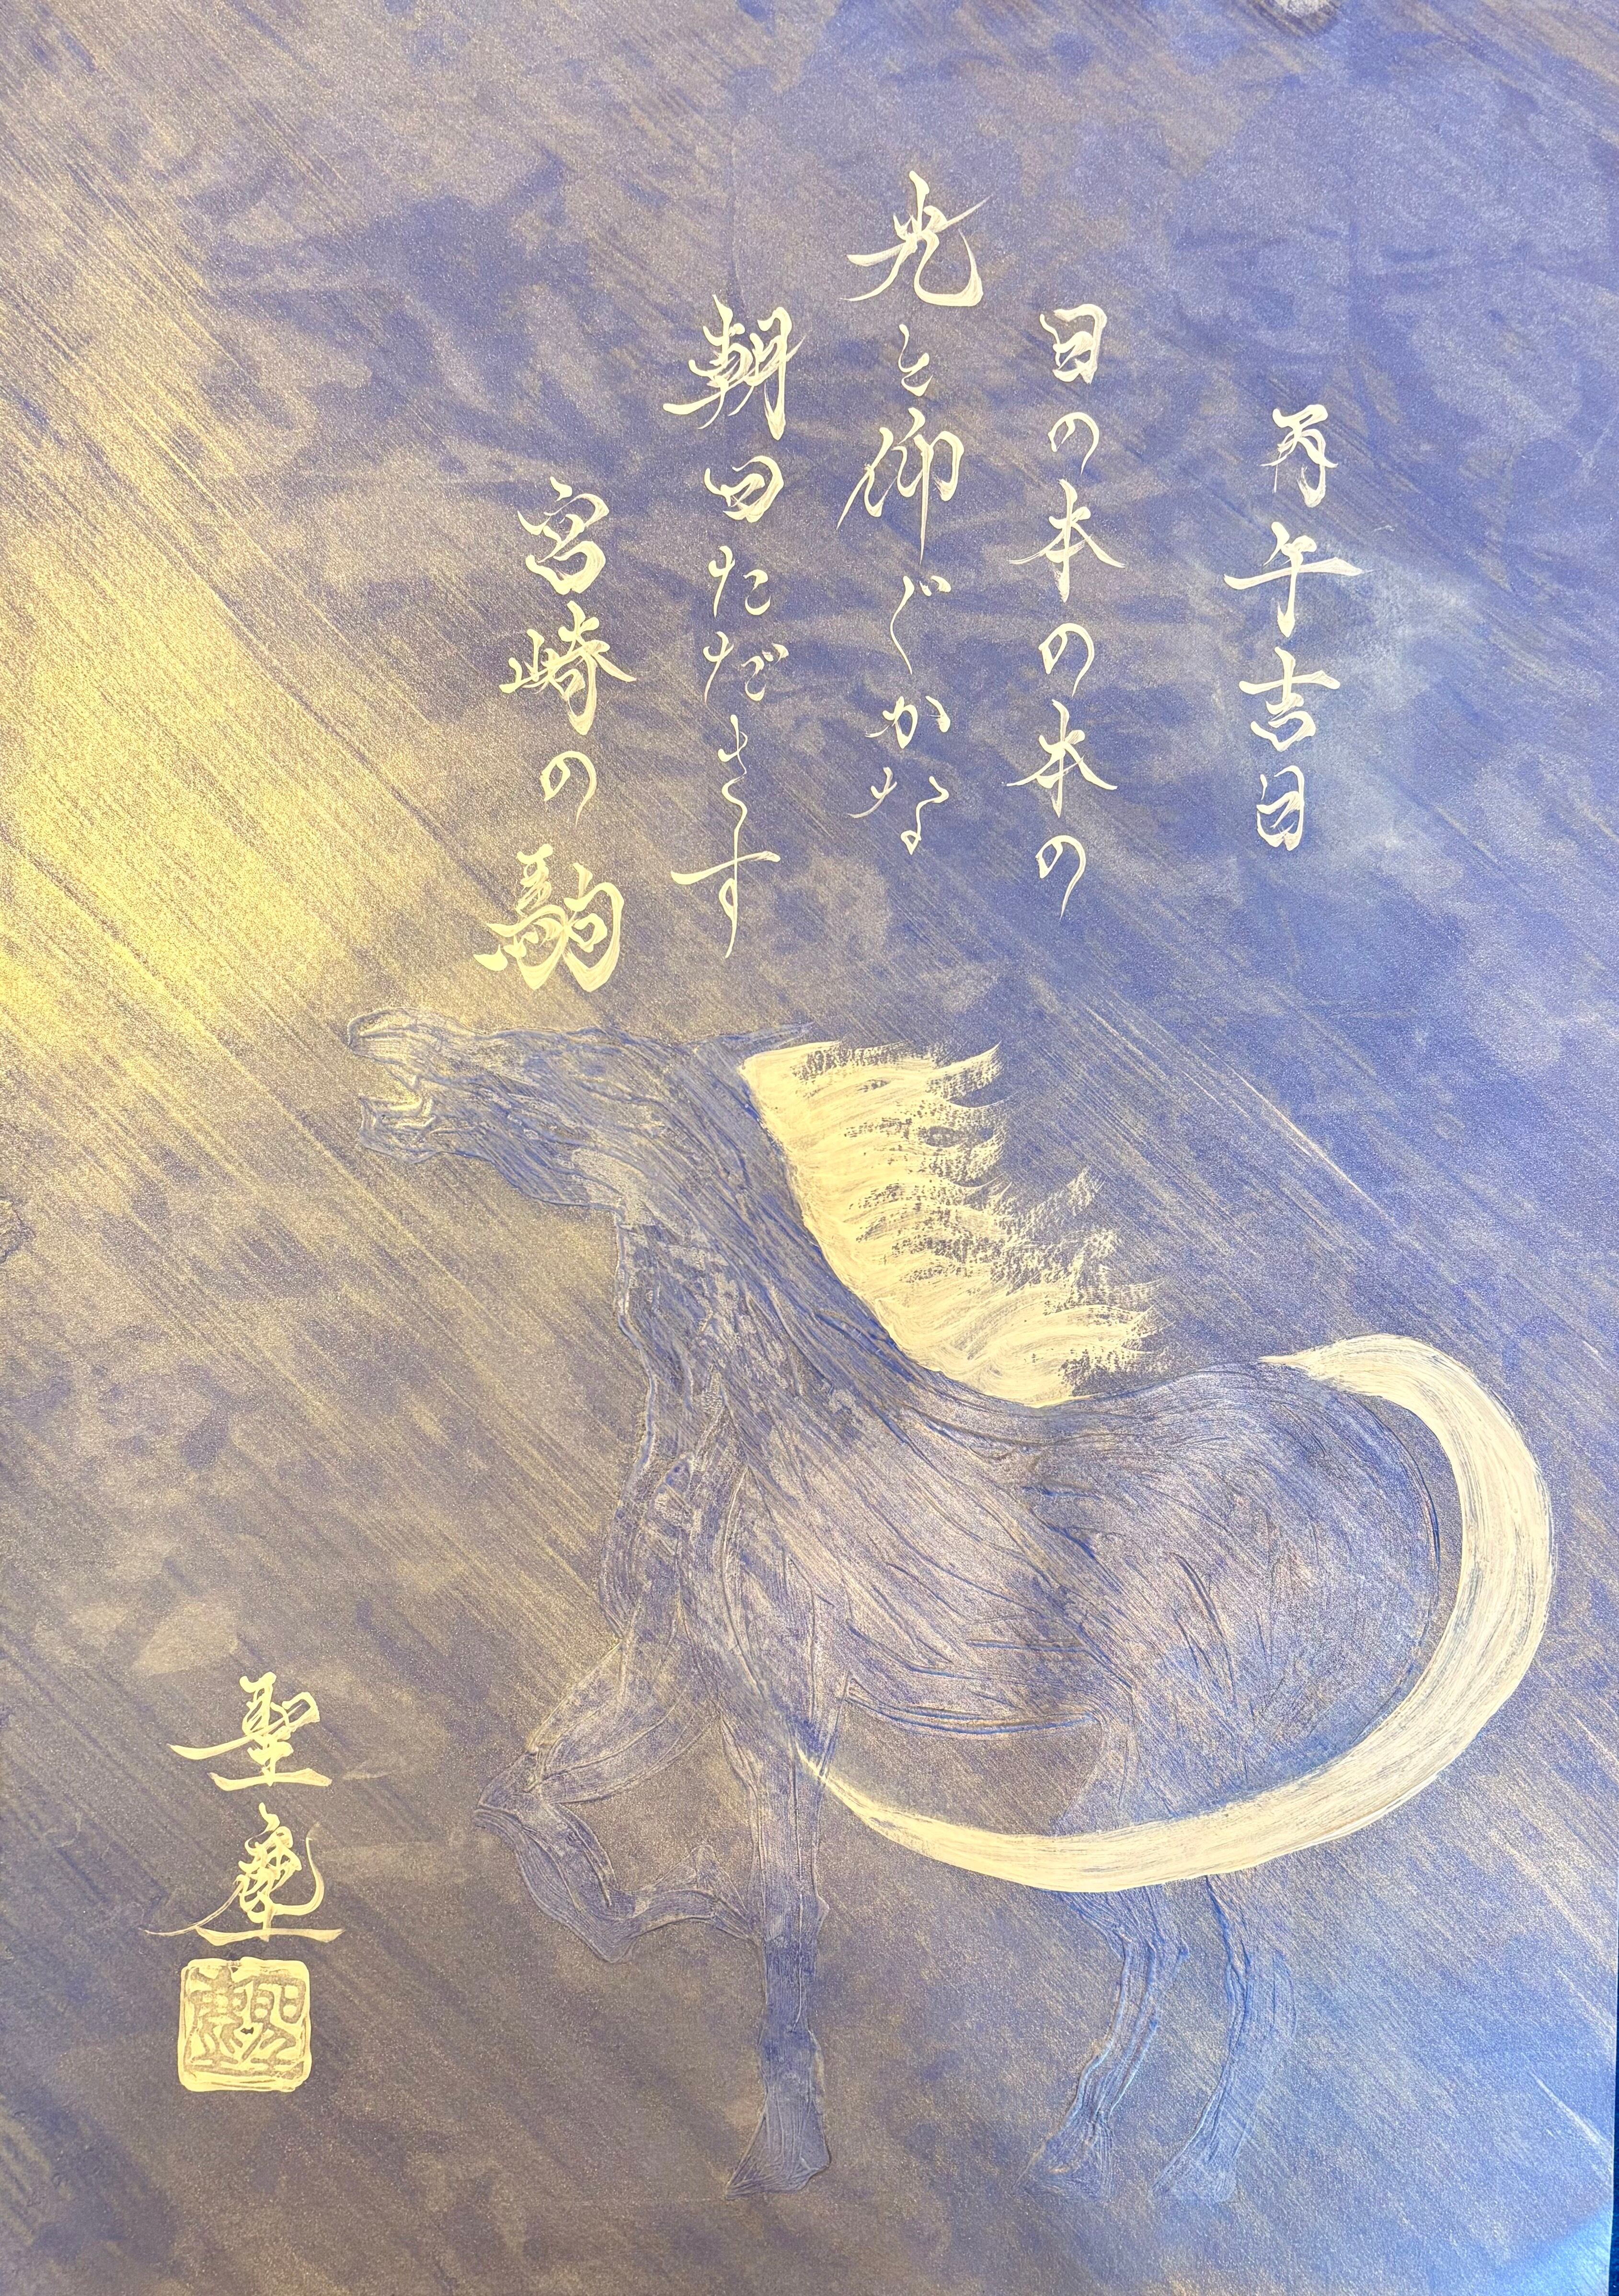 丙午吉日
日の本の本の
光と仰ぐかな
朝日たださす
宮崎の駒
聖